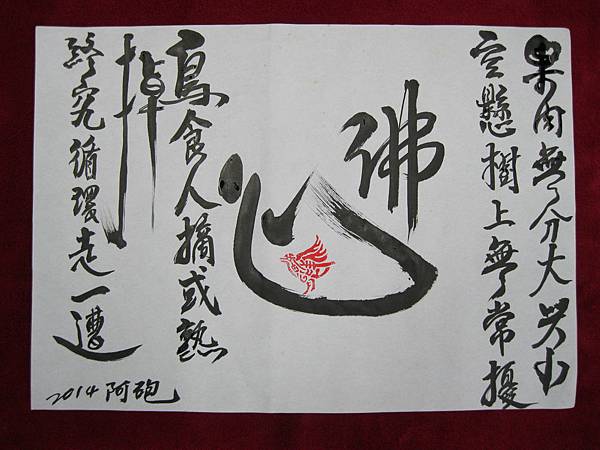 果肉無分大與小
空懸樹上無常擾
佛
心
鳥食人摘或熟
掉
終究循環走一遭
2014 阿砲